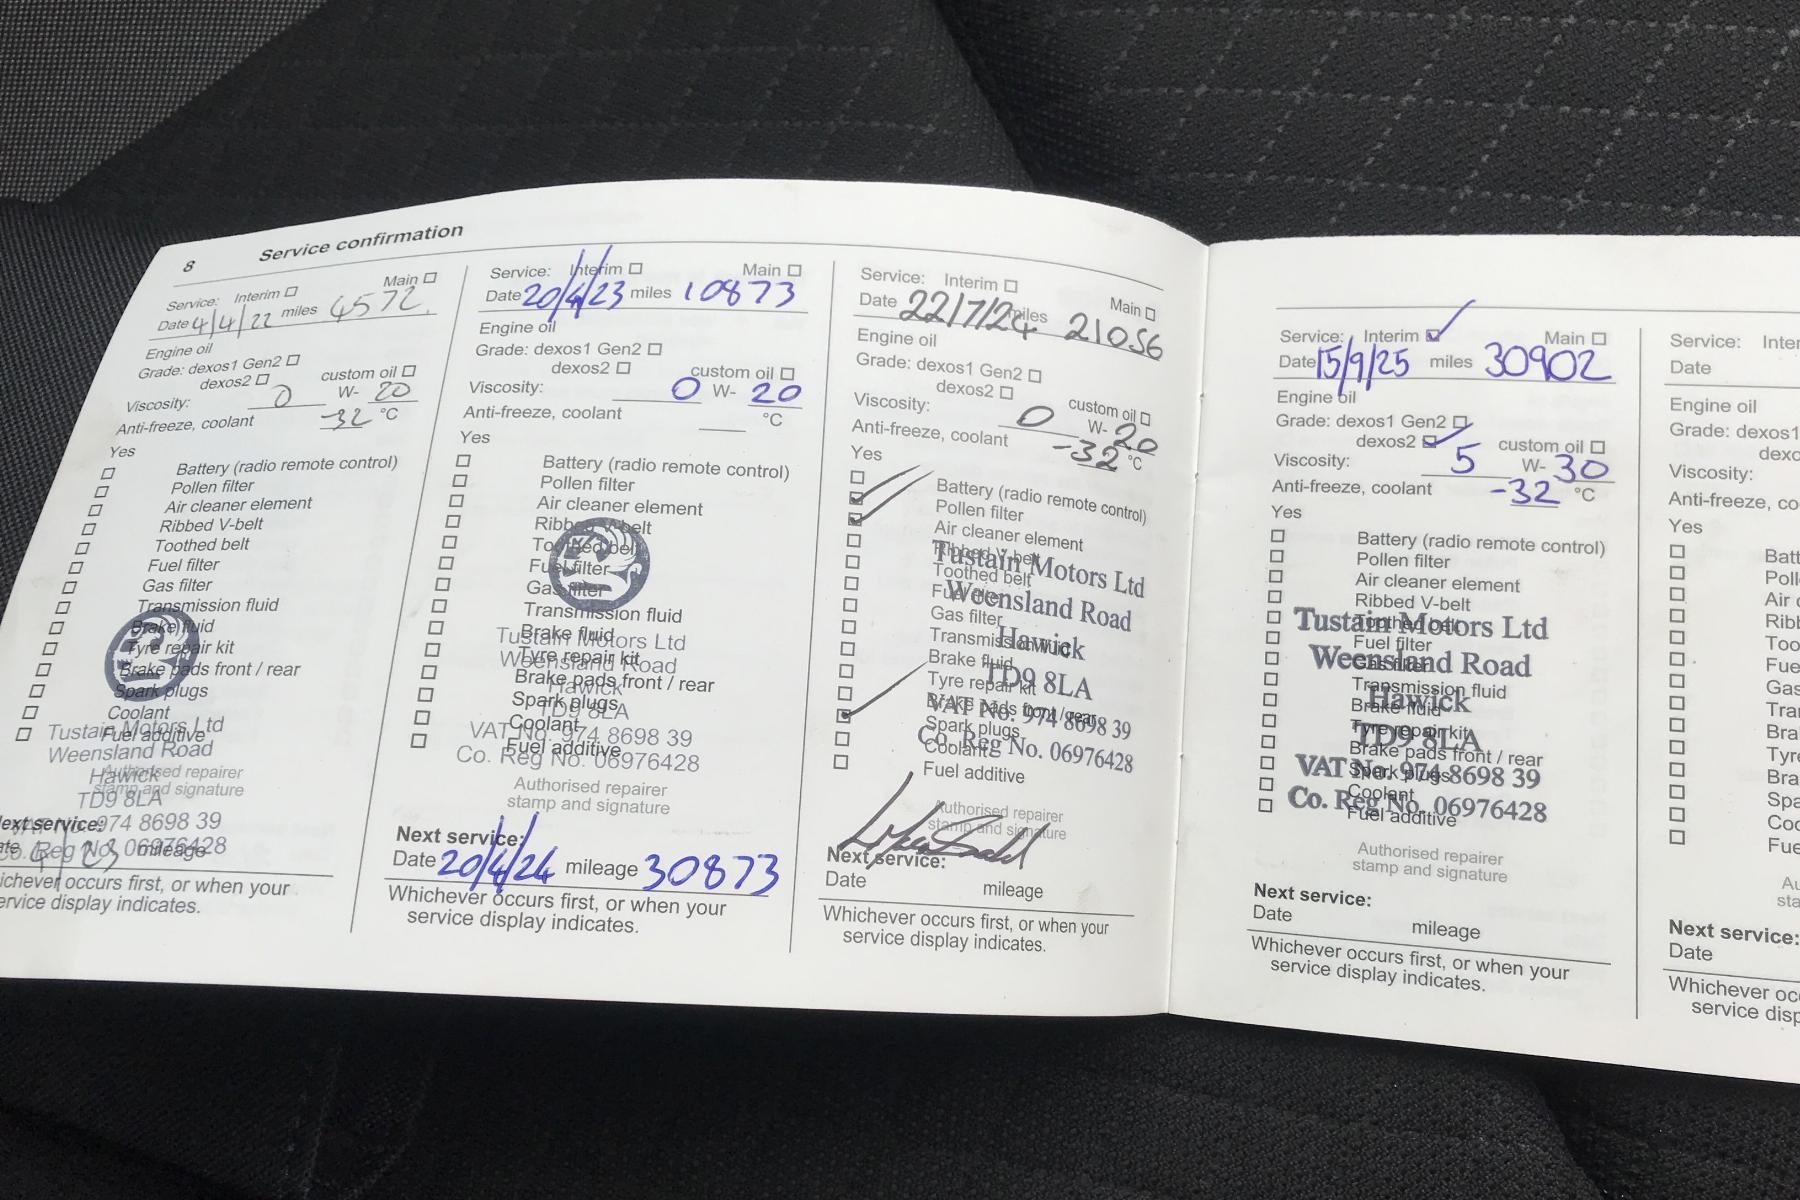 8 Service confirmation
Service: Interim ☐ Main ☐
Date 4/4/22 miles 4572
Engine oil
Grade: dexos1 Gen2 ☐
dexos2 ☐ custom oil ☐
Viscosity: 0 W- 20
Anti-freeze, coolant -32 °C
Yes
☐ Battery (radio remote control)
☐ Pollen filter
☐ Air cleaner element
☐ Ribbed V-belt
☐ Toothed belt
☐ Fuel filter
☐ Gas filter
☐ Transmission fluid
☐ Brake fluid
☐ Tyre repair kit
☐ Brake pads front / rear
☐ Spark plugs
☐ Coolant
☐ Fuel additive
Tustain Motors Ltd
Weensland Road
Hawick
TD9 8LA
VAT No. 974 8698 39
Co. Reg No. 06976428
Authorised repairer
stamp and signature
Next service:
mileage
Whichever occurs first, or when your
service display indicates.
Service: Interim ☐ Main ☐
Date 20/4/23 miles 10873
Engine oil
Grade: dexos1 Gen2 ☐
dexos2 ☐ custom oil ☐
Viscosity: 0 W- 20
Anti-freeze, coolant °C
Yes
☐ Battery (radio remote control)
☐ Pollen filter
☐ Air cleaner element
☐ Ribbed V-belt
☐ Toothed belt
☐ Fuel filter
☐ Gas filter
☐ Transmission fluid
☐ Brake fluid
☐ Tyre repair kit
☐ Brake pads front / rear
☐ Spark plugs
☐ Coolant
☐ Fuel additive
Tustain Motors Ltd
Weensland Road
Hawick
TD9 8LA
VAT No. 974 8698 39
Co. Reg No. 06976428
Authorised repairer
stamp and signature
Next service:
Date 20/4/24 mileage 30873
Whichever occurs first, or when your
service display indicates.
Service: Interim ☐ Main ☐
Date 22/7/24 miles 21056
Engine oil
Grade: dexos1 Gen2 ☐
dexos2 ☐ custom oil ☐
Viscosity: 0 W- 20
Anti-freeze, coolant -32 °C
Yes
Battery (radio remote control)
Pollen filter
Air cleaner element
Ribbed V-belt
Toothed belt
Fuel filter
Gas filter
Transmission fluid
Brake fluid
Tyre repair kit
Brake pads front / rear
Spark plugs
Coolant
Fuel additive
Tustain Motors Ltd
Weensland Road
Hawick
TD9 8LA
VAT No. 974 8698 39
Co. Reg No. 06976428
Authorised repairer
stamp and signature
Next service:
Date mileage
Whichever occurs first, or when your
service display indicates.
Service: Interim ☑ Main ☐
Date 15/9/25 miles 30902
Engine oil
Grade: dexos1 Gen2 ☐
dexos2 ☑ custom oil ☐
Viscosity: 5 W- 30
Anti-freeze, coolant -32 °C
Yes
☐ Battery (radio remote control)
☐ Pollen filter
☐ Air cleaner element
☐ Ribbed V-belt
☐ Toothed belt
☐ Fuel filter
☐ Gas filter
☐ Transmission fluid
☐ Brake fluid
☐ Tyre repair kit
☐ Brake pads front / rear
☐ Spark plugs
☐ Coolant
☐ Fuel additive
Tustain Motors Ltd
Weensland Road
Hawick
TD9 8LA
VAT No. 974 8698 39
Co. Reg No. 06976428
Authorised repairer
stamp and signature
Next service:
Date mileage
Whichever occurs first, or when your
service display indicates.
Service: Inter
Date
Engine oil
Grade: dexos1
dexo
Viscosity:
Anti-freeze, co
Yes
☐ Batt
☐ Poll
☐ Air c
☐ Ribb
☐ Too
☐ Fue
☐ Gas
☐ Tra
☐ Bra
☐ Tyre
☐ Bra
☐ Spa
☐ Coo
☐ Fue
Au
sta
Next service:
Date
Whichever oc
service disp